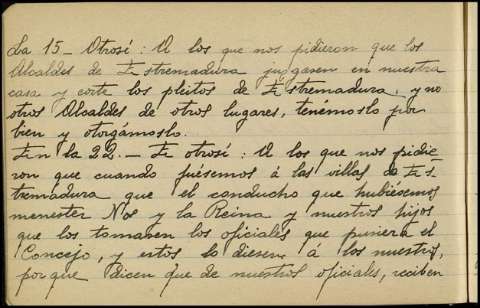 La 15_ Otrosí: A los que nos pidieron que los
Alcaldes de Estremadura juzgasen en nuestra
casa y corte los pleitos de Estremadura, y no
otros Alcaldes de otros lugares, tenémoslo por
bien y otorgámoslo.
En la 22._ E otrosí: A los que nos pidie-
ron que cuando fuésemos á las villas de Es-
tremadura que el conducho que hubiésemos
menester Nos y la Reina y nuestros hijos
que los tomasen los oficiales que pusiera el
Concejo, y estos lo diesen á los nuestros,
porque dicen que de nuestros oficiales, reciben